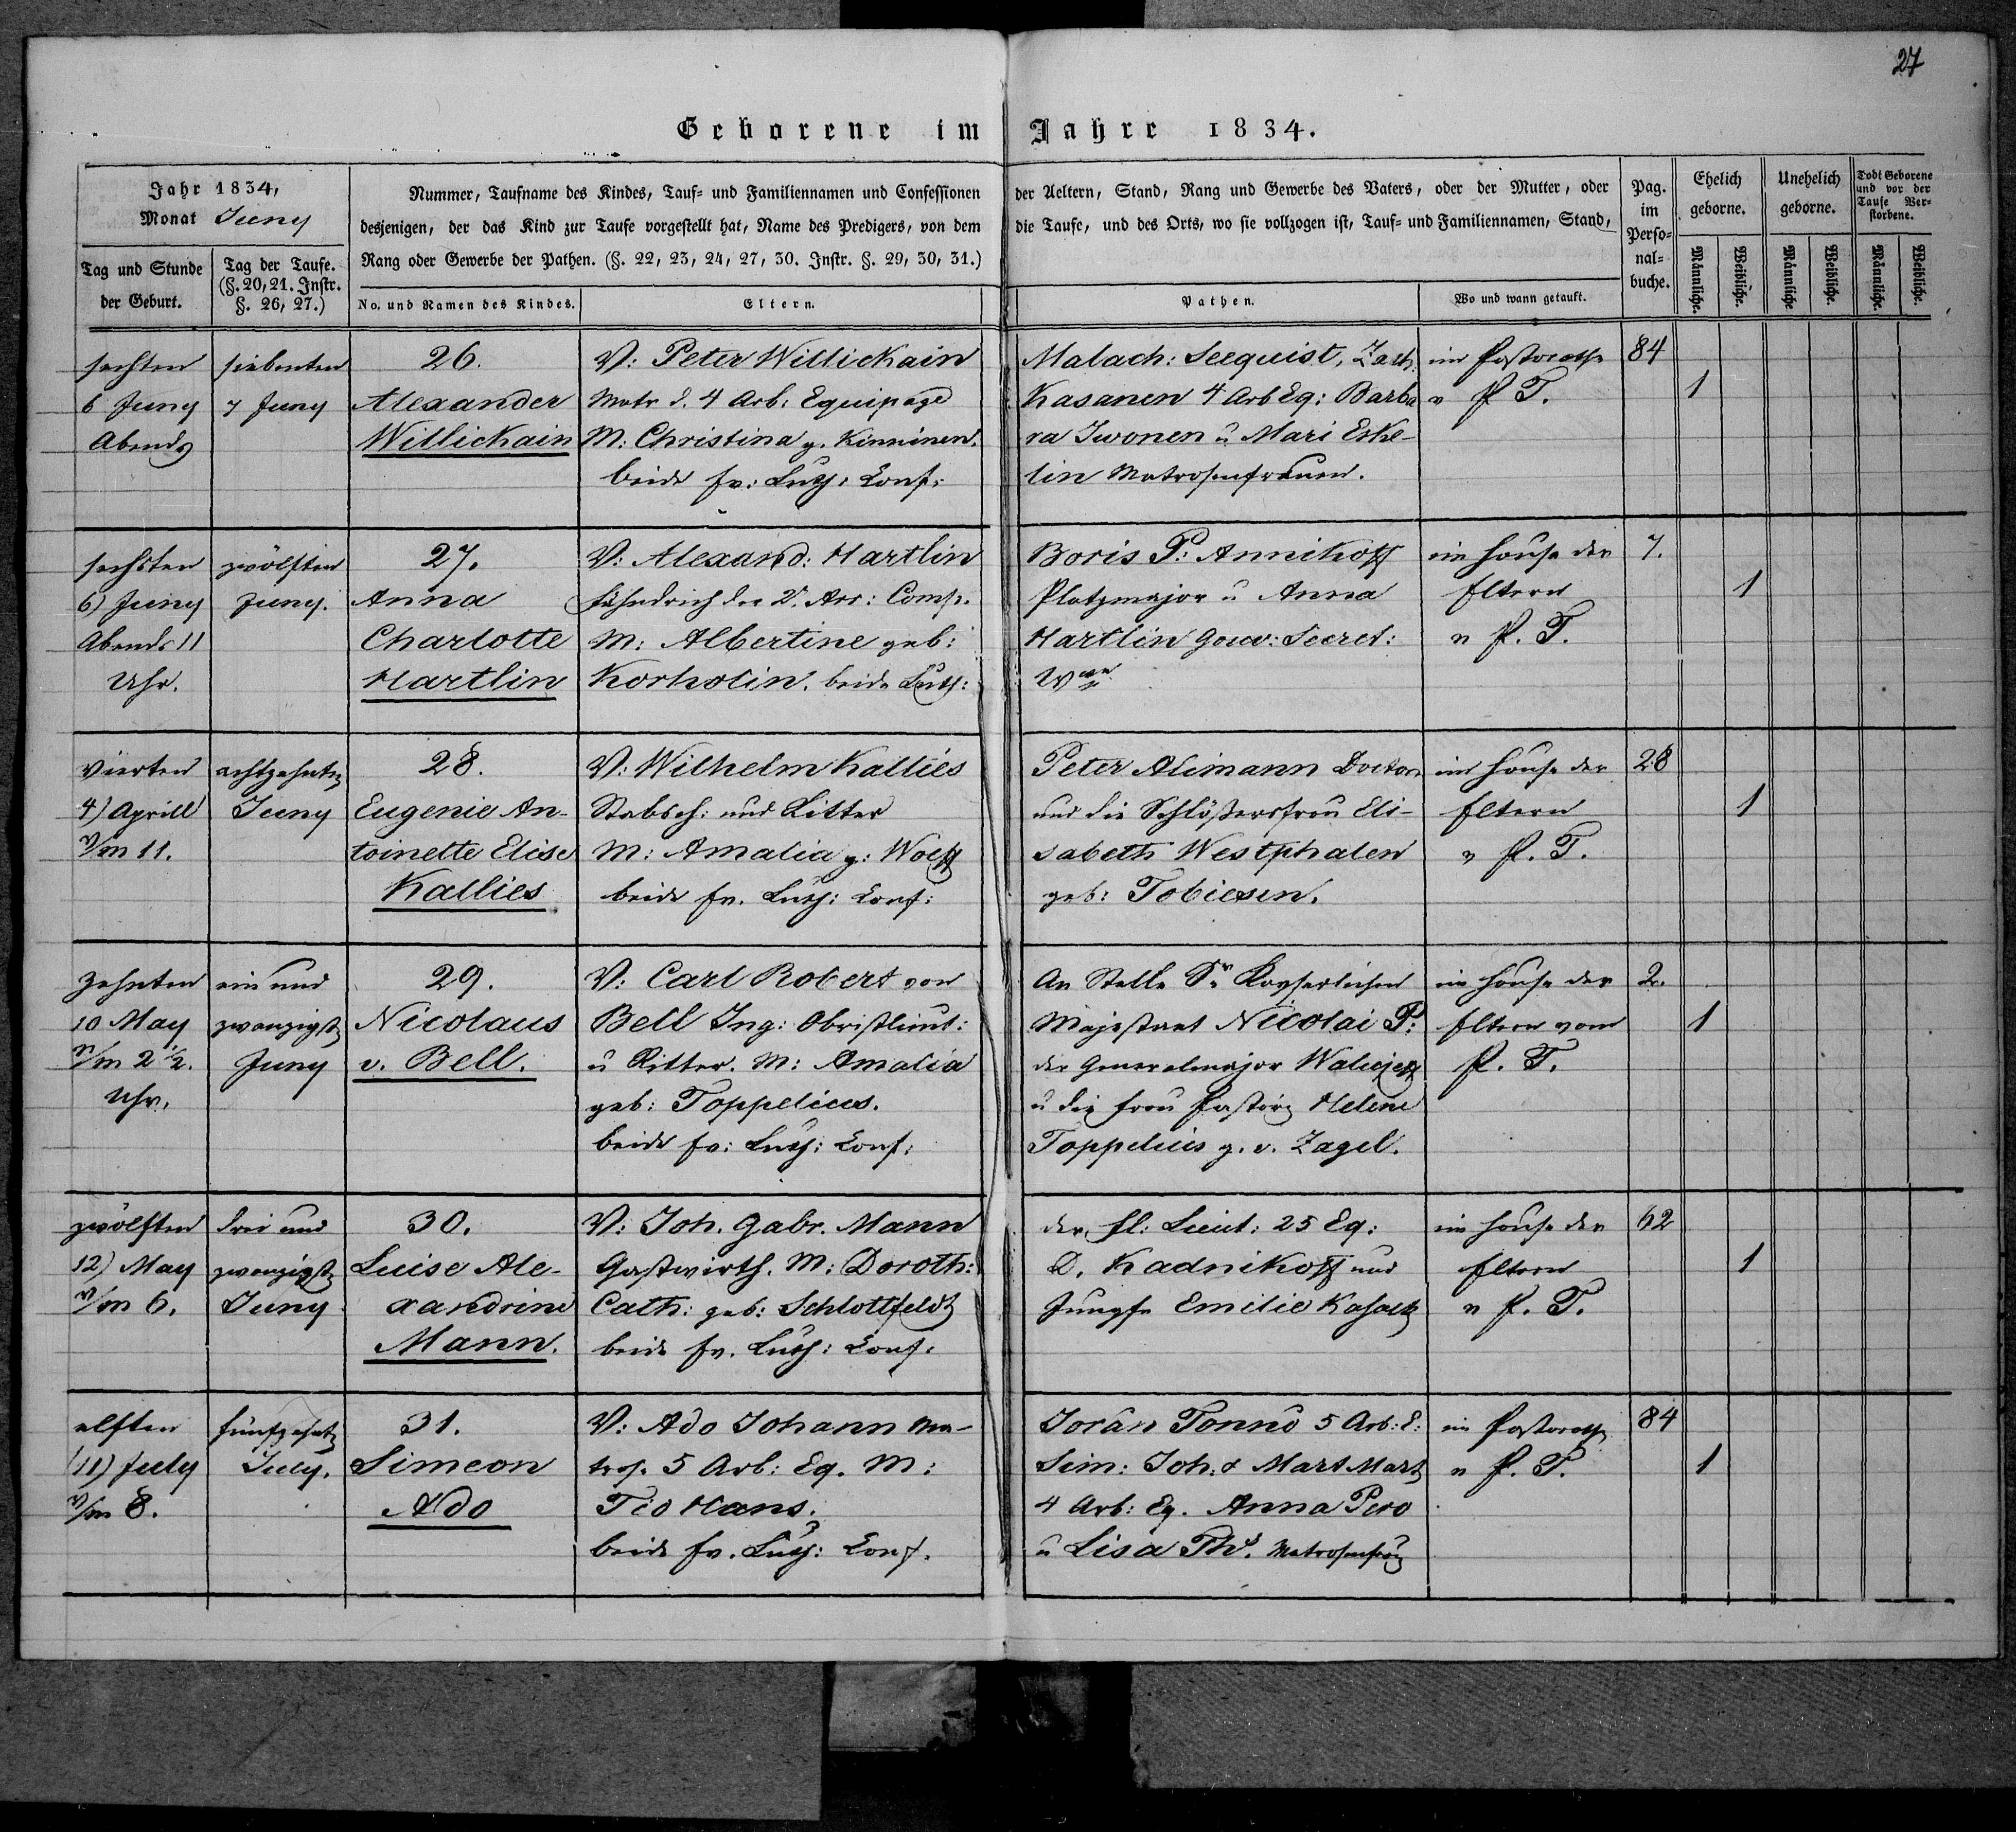 27
Geborene im Jahre 1834.
Jahr 1834,
Monat Juny
Nummer, Taufname des Kindes, Tauf- und Familiennamen und Confessionen der Aeltern, Stand, Rang und Gewerbe des Vaters, oder der Mutter, oder
desjenigen, der das Kind zur Taufe vorgestellt hat, Name des Predigers, von dem die Taufe, und des Orts, wo sie vollzogen ist, Tauf- und Familiennamen, Stand,
Rang oder Gewerbe der Pathen. (§. 22, 23, 24, 27, 30. Instr. §. 29, 30, 31.)
Pag.
im
Perso-
nal-
buche.
Ehelich
geborne.
Unehelich
geborne.
Todt Geborene
und vor der
Taufe Ver-
storbene.
Tag und Stunde
der Geburt.
Tag der Taufe.
(§. 20, 21. Instr.
§. 26, 27.)
No. und Namen des Kindes.
Eltern.
Pathen.
Wo und wann getauft.
Männliche.
Weibliche.
Männliche
Weibliche.
Männliche.
Weibliche.
sechsten
6 Juny
Abends
siebenten
7 Juny
26.
Alexander
Willickain
V: Peter Willickain
Matr. d. 4 Arb: Equipage
M: Christina g. Kinninen.
beide Ev: Luth: Conf:
Malach: Seequist, Zach.
Kasanen 4 Arb Eq: Barba
ra Iwonen u Mari Eske-
lin Matrosenfrauen.
im Pastorathe
v P T.
84
1
sechsten
6) Juny
Abends 11
Uhr.
zwölften
Juny.
27.
Anna
Charlotte
Hartlin
V: Alexand: Hartlin
Fähndrich der 2. Arr: Comp.
M: Albertine geb:
Korholin. beide Luth:
Boris P: Annikoff
Platzmajor u Anna
Hartlin Gouv: Secret:
im Hause der
Eltern
v P. T.
7.
1
Vierten
4) Aprill
V/m 11.
achtzehnten
Juny
28.
Eugenie An-
toinette Elise
Kallies
V: Wilhelm Kallies
Stabsch: und Ritter
M: Amalia g: Wolff
beide Ev. Luth: Conf:
Peter Alimann Doctor
und die Schlößersfrau Eli-
sabeth Westphalen
geb: Tobiesen.
im Hause der
Eltern
v P. T.
28
1
Zehnten
10 May
N/m 2 1/2.
Uhr.
ein und
zwanzigst
Juny
29.
Nicolaus
v. Bell.
V: Carl Robert von
Bell Ing: Obristlieut:
u Ritter. M: Amalia
geb: Toppelius.
beide Ev: Luth: Conf:
An Stelle Sr. Kayserlichen
Majestaet Nicolai P:
der Generalmajor
u die Frau Pastorin Helene
Toppelius g. v. Zagel.
im Hause der
Eltern vom
P. T.
2.
1
zwölften
12) May
V/m 6.
drei und
zwanzigst
Juny
30.
Luise Ale-
xandrine
Mann.
V: Joh. Gabr. Mann
Gastwirth. M: Doroth:
Cath: geb: Schlottfeldt
beide Ev. Luth: Conf:
der Fl: Lieut: 25 Eq:
D. Kadnikoff und
Jungfr Emilie
im Hause der
Eltern
v P. T.
62
1
elften
(11) July
V/m 8.
fünfzehnt
July.
31.
Simeon
Ado
V: Ado Johann Ma-
trose 5 Arb: Eq. M:
Tio Hans.
beide Ev. Luth: Conf.
Joran Tonno 5 Arb: E:
Sim: Joh: & Mart Mart
4 Arb: Eq. Anna Pero
u Lisa Matrosenfrau
im Pastorathe
v P. T.
84
1